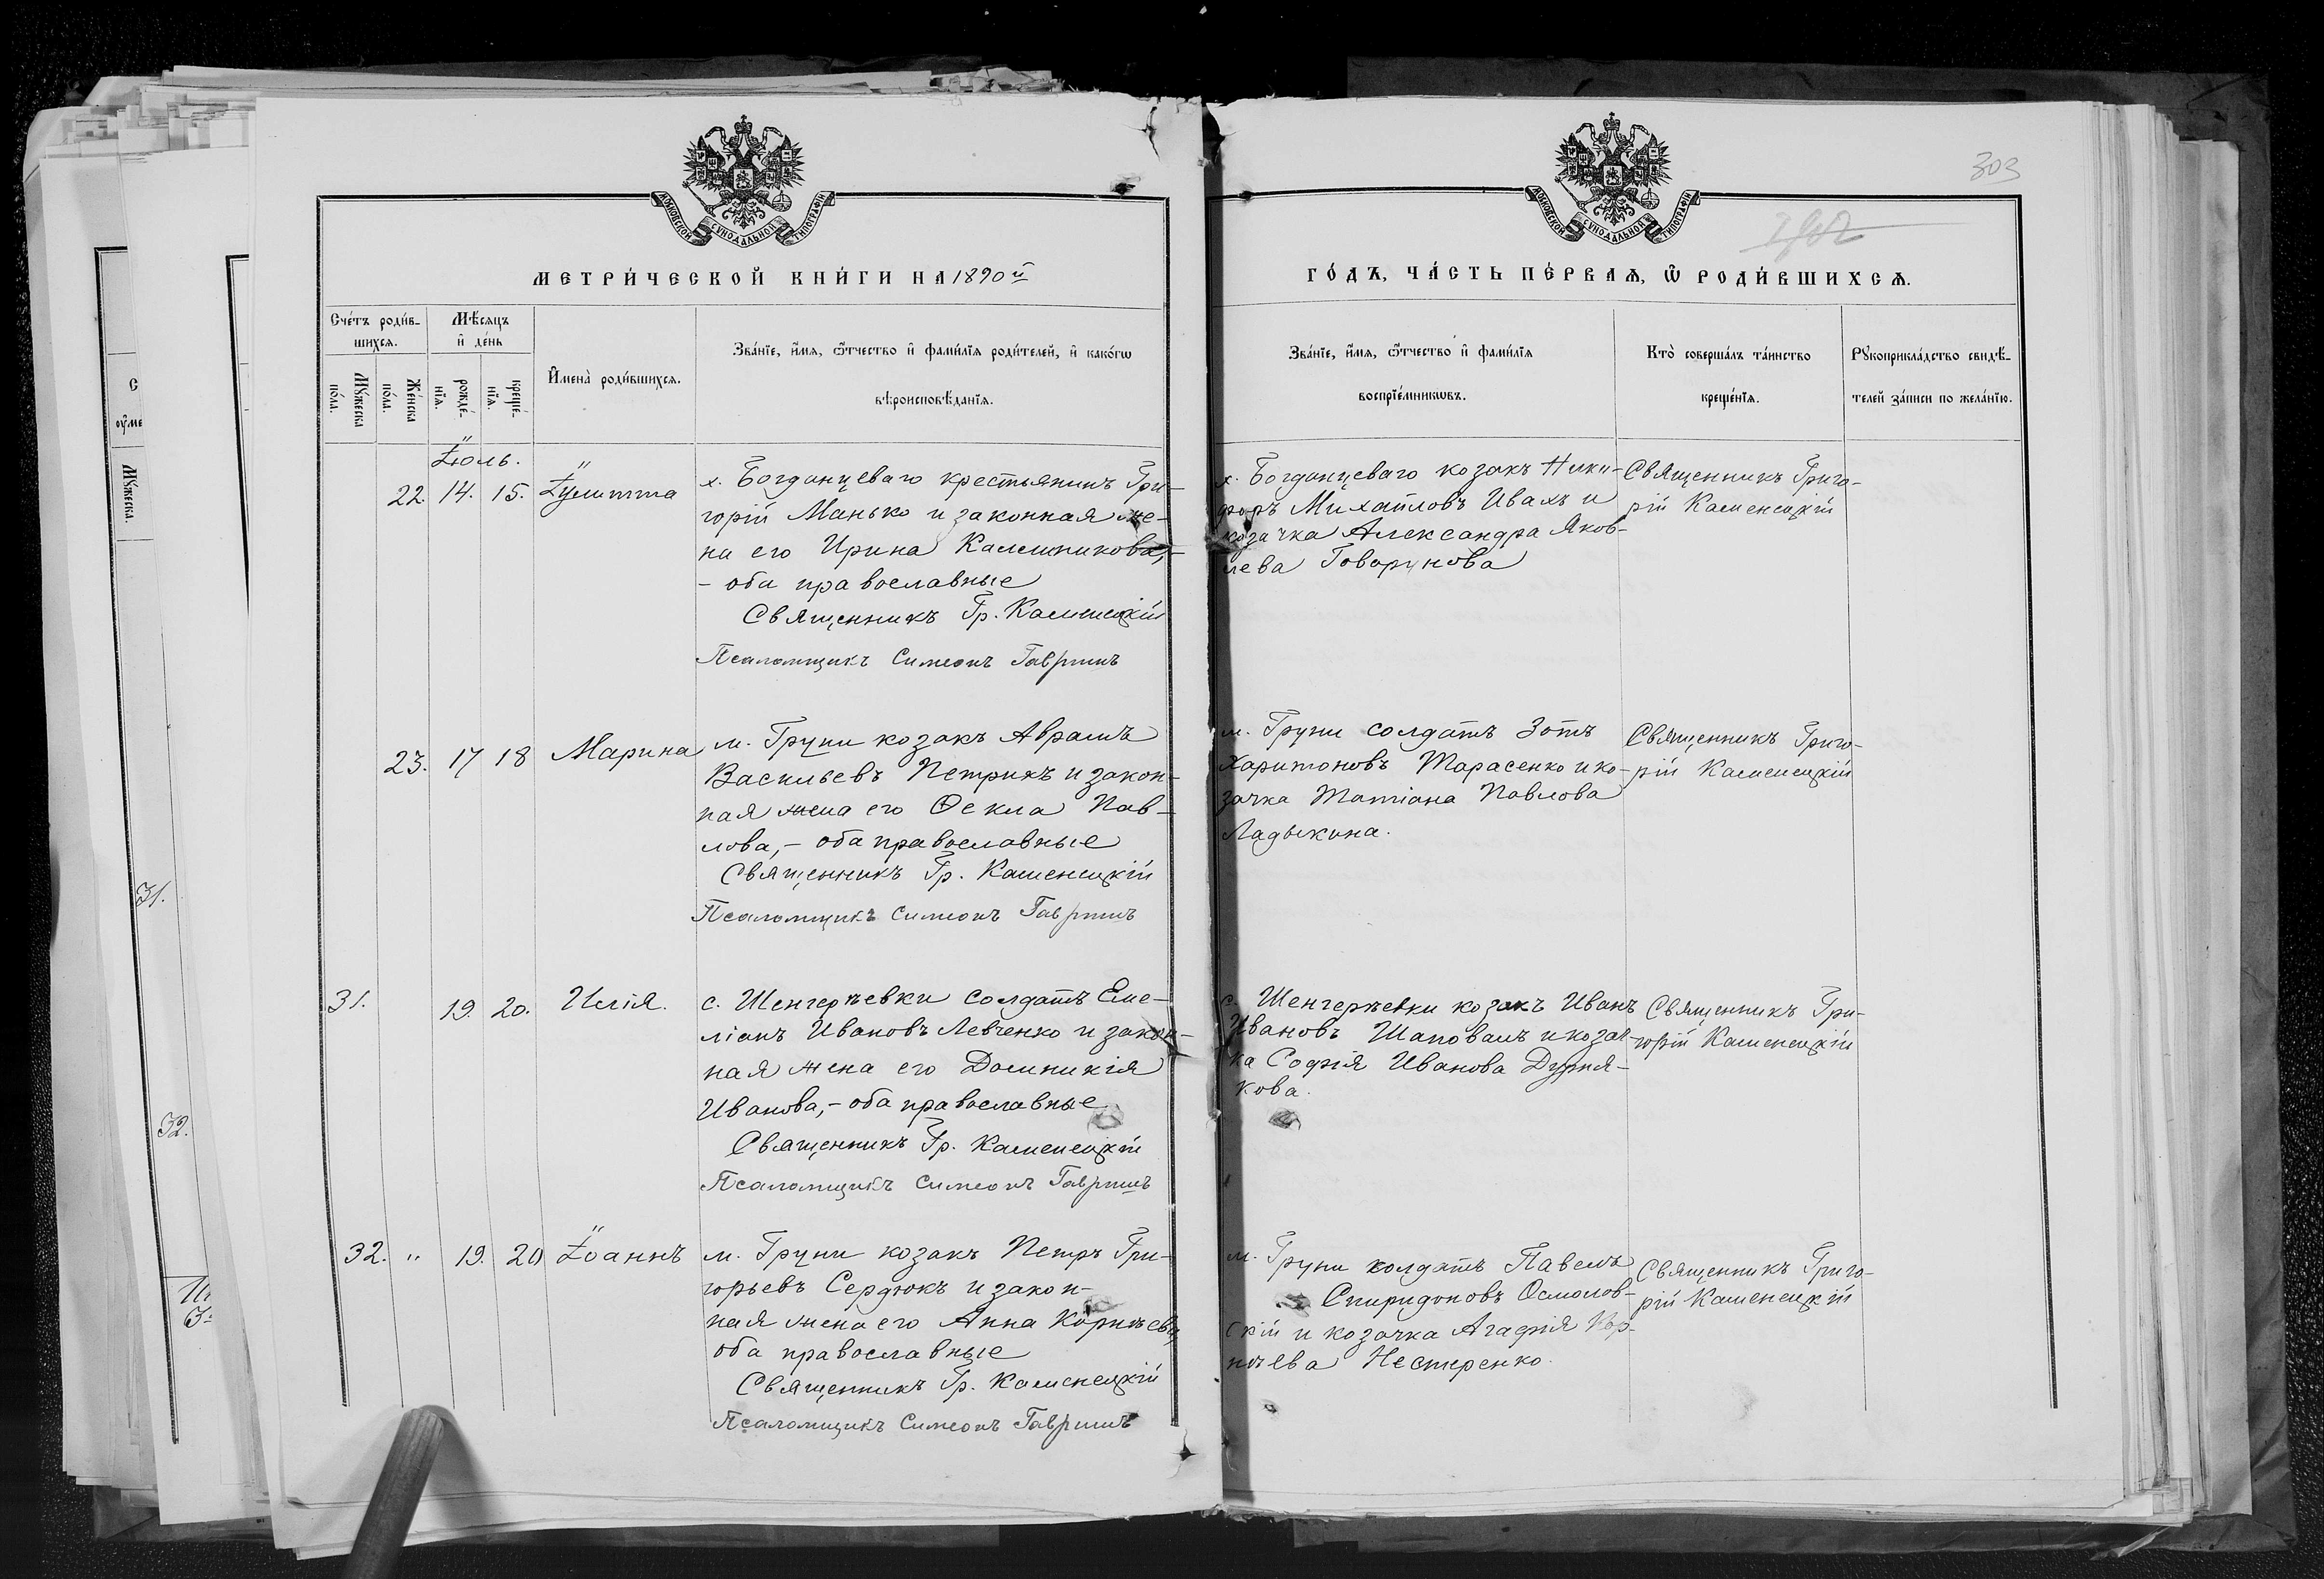 303
МОСКОВСКОЙ СУНОДАЛЬНОЙ ТИПОГРАФІИ
МОСКОВСКОЙ СУНОДАЛЬНОЙ ТИПОГРАФІИ
МЕТРИ́ЧЕСКОЙ КНИ́ГИ НА 1890й
ГО́ДЪ, ЧА́СТЬ ПЕ́РВАѦ, Ѿ РОДИ́ВШИХСѦ.
Сче́тъ роди́в-
шихсѧ.
Мꙋ́жеска
по́ла.
Же́нска
по́ла.
Мѣ́сѧцъ
и҆ де́нь
рожде́-
нїѧ.
креще́-
нїѧ.
И҆мена̀ роди́вшихсѧ.
Зва́нїе, и҆́мѧ, ѻ҆́тчество и҆ фами́лїѧ роди́телей, и҆ како́гѡ
вѣроисповѣ́данїѧ.
Зва́нїе, и҆́мѧ, ѻ҆́тчество и҆ фами́лїѧ
воспрїе́мникѡвъ.
Кто̀ соверша́лъ та́инство
креще́нїѧ.
Рꙋкоприкла́дство свидѣ́-
телей за́писи по жела́нїю.
Іюль.
22. 14. 15. Іулитта
х. Богданцеваго крестьянинъ Гри-
горій Манько и законная же-
на его Ирина Калинникова,-
- оба православные
Священникъ Гр. Каменецкій
Псаломщикъ Симеонъ Гавришъ
х. Богданцеваго козакъ Ники-
форъ Михайловъ Ивахъ и
козачка Александра Яков-
лева Говорунова
Священникъ Григо-
рій Каменецкій
23. 17 18 Марина
м. Груни козакъ Аврамъ
Васильевъ Петрикъ и закон-
ная жена его Ѳекла Пав-
лова,- оба православные
Священникъ Гр. Каменецкій
Псаломщикъ Симеонъ Гавришъ
м. Груни солдатъ Зотъ
Харитоновъ Тарасенко и ко-
зачка Татіана Павлова
Ладыкина.
Священникъ Григо-
рій Каменецкій
31. 19. 20. Илія.
с. Шенгерѣевки солдатъ Еме-
ліанъ Ивановъ Левченко и закон-
ная жена его Домникія
Иванова,- оба православные
Священникъ Гр. Каменецкій
Псаломщикъ Симеонъ Гавришъ
с. Шенгерѣевки козакъ Иванъ
Ивановъ Шаповалъ и козач-
ка Софія Иванова
кова.
Священникъ Гри-
горій Каменецкій
32. " 19. 20 Іоаннъ
м. Груни козакъ Петръ Гри-
горьевъ Сердюкъ и закон-
ная жена его Анна Корнѣева
оба православные
Священникъ Гр. Каменецкій
Псаломщикъ Симеонъ Гавришъ
м. Груни солдатъ Павелъ
Спиридоновъ Осмолов-
скій и козачка Агафія Кор-
нѣева Нестеренко.
Священникъ Григо-
рій Каменецкій
31.
32.